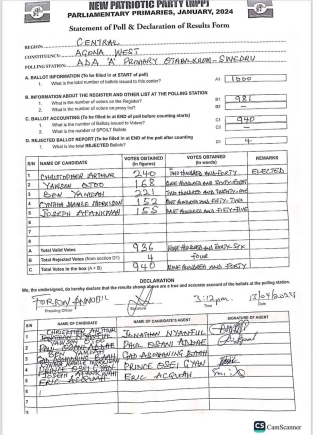 NEW PATRIOTIC PARTY (NPP)
PARLIAMENTARY PRIMARIES, JANUARY, 2024
Statement of Poll & Declaration of Results Form
REGION CENTRAL
CONSTITUENCY AGONA WEST
POLLING STATION ADA 'A' PRIMARY OTABA-KROM-SWEDRU
A. BALLOT INFORMATION (To be filled in at START of poll)
1. What is the total number of ballots issued to this center? A1 1000
B. INFORMATION ABOUT THE REGISTER AND OTHER LIST AT THE POLLING STATION
1. What is the number of voters on the Register? B1 981
2. What is the number of voters on proxy list? B2 -
C. BALLOT ACCOUNTING (To be filled in at END of poll before counting starts)
1. What is the number of Ballot issued to Voters? C1 940
2. What is the number of SPOILT Ballots C2 -
D. REJECTED BALLOT REPORT (To be filled in at END of the poll after counting
1. What is the total REJECTED Ballots? D1 4
S/N NAME OF CANDIDATE VOTES OBTAINED (In figures) VOTES OBTAINED (In words) REMARKS
1 CHRISTOPHER ARTHUR 240 TWO HUNDRED AND FORTY ELECTED
2 YAWSON OTOO 168 ONE HUNDRED AND SIXTY-EIGHT
3 BEN YAMOAH 221 TWO HUNDRED AND TWENTY-ONE
4 CYNTHIA MAMLE MORRISON 152 ONE HUNDRED AND FIFTY-TWO
5 JOSEPH AFANKWAH 155 ONE HUNDRED AND FIFTY-FIVE
6
7
8
A Total Valid Votes 936 NINE HUNDRED AND FORTY SIX
B Total Rejected Votes (from section D1) 4 FOUR
C Total Votes in the box (A + B) 940 NINE HUNDRED AND FORTY
DECLARATION
We, the undersigned, do hereby declare that the results shown above are a true and accurate account of the ballots at the polling station.
3:12pm
Presiding Officer Signature Time Date
S/N NAME OF CANDIDATE NAME OF CANDIDATE'S AGENT SIGNATURE OF CANDIDATE'S AGENT
CHRISTOPHER ARTHUR JONATHAN NYANFUL
PAUL ADDAE
BEN YAMOAH
PRINCE ESEI GYAN PRINCE ESEI GYAN
ERIC ACQUAH ERIC ACQUAH
CS CamScanner